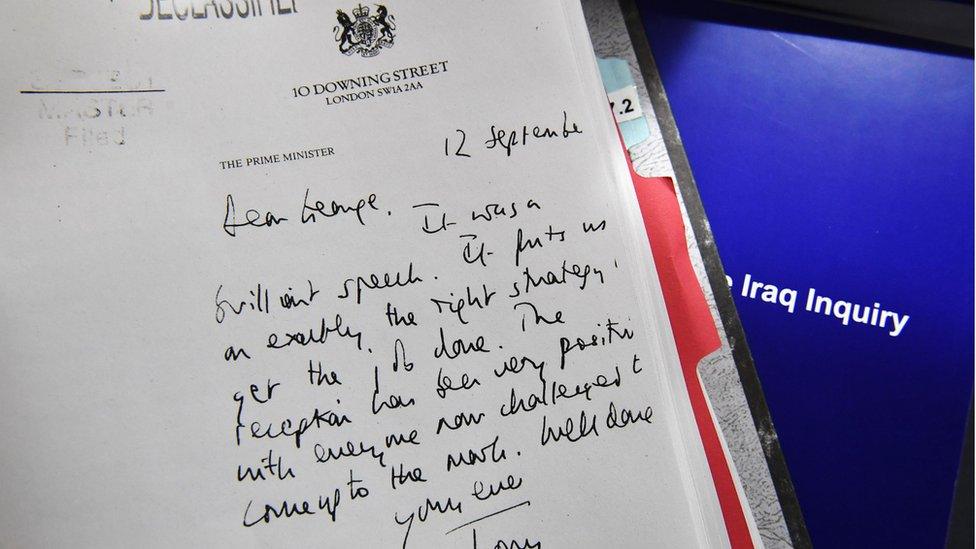 DECLASSIFIED
10 DOWNING STREET
LONDON SW1A 2AA
MASTER
Filed
THE PRIME MINISTER
12 September
Dear George.
It was a
brilliant speech. It puts us
on exactly the right strategy
get the job done. The
reception has been very positive
with everyone now challenged t
come up to the mark. Well done
yours ever
Tony
7.2
Iraq Inquiry